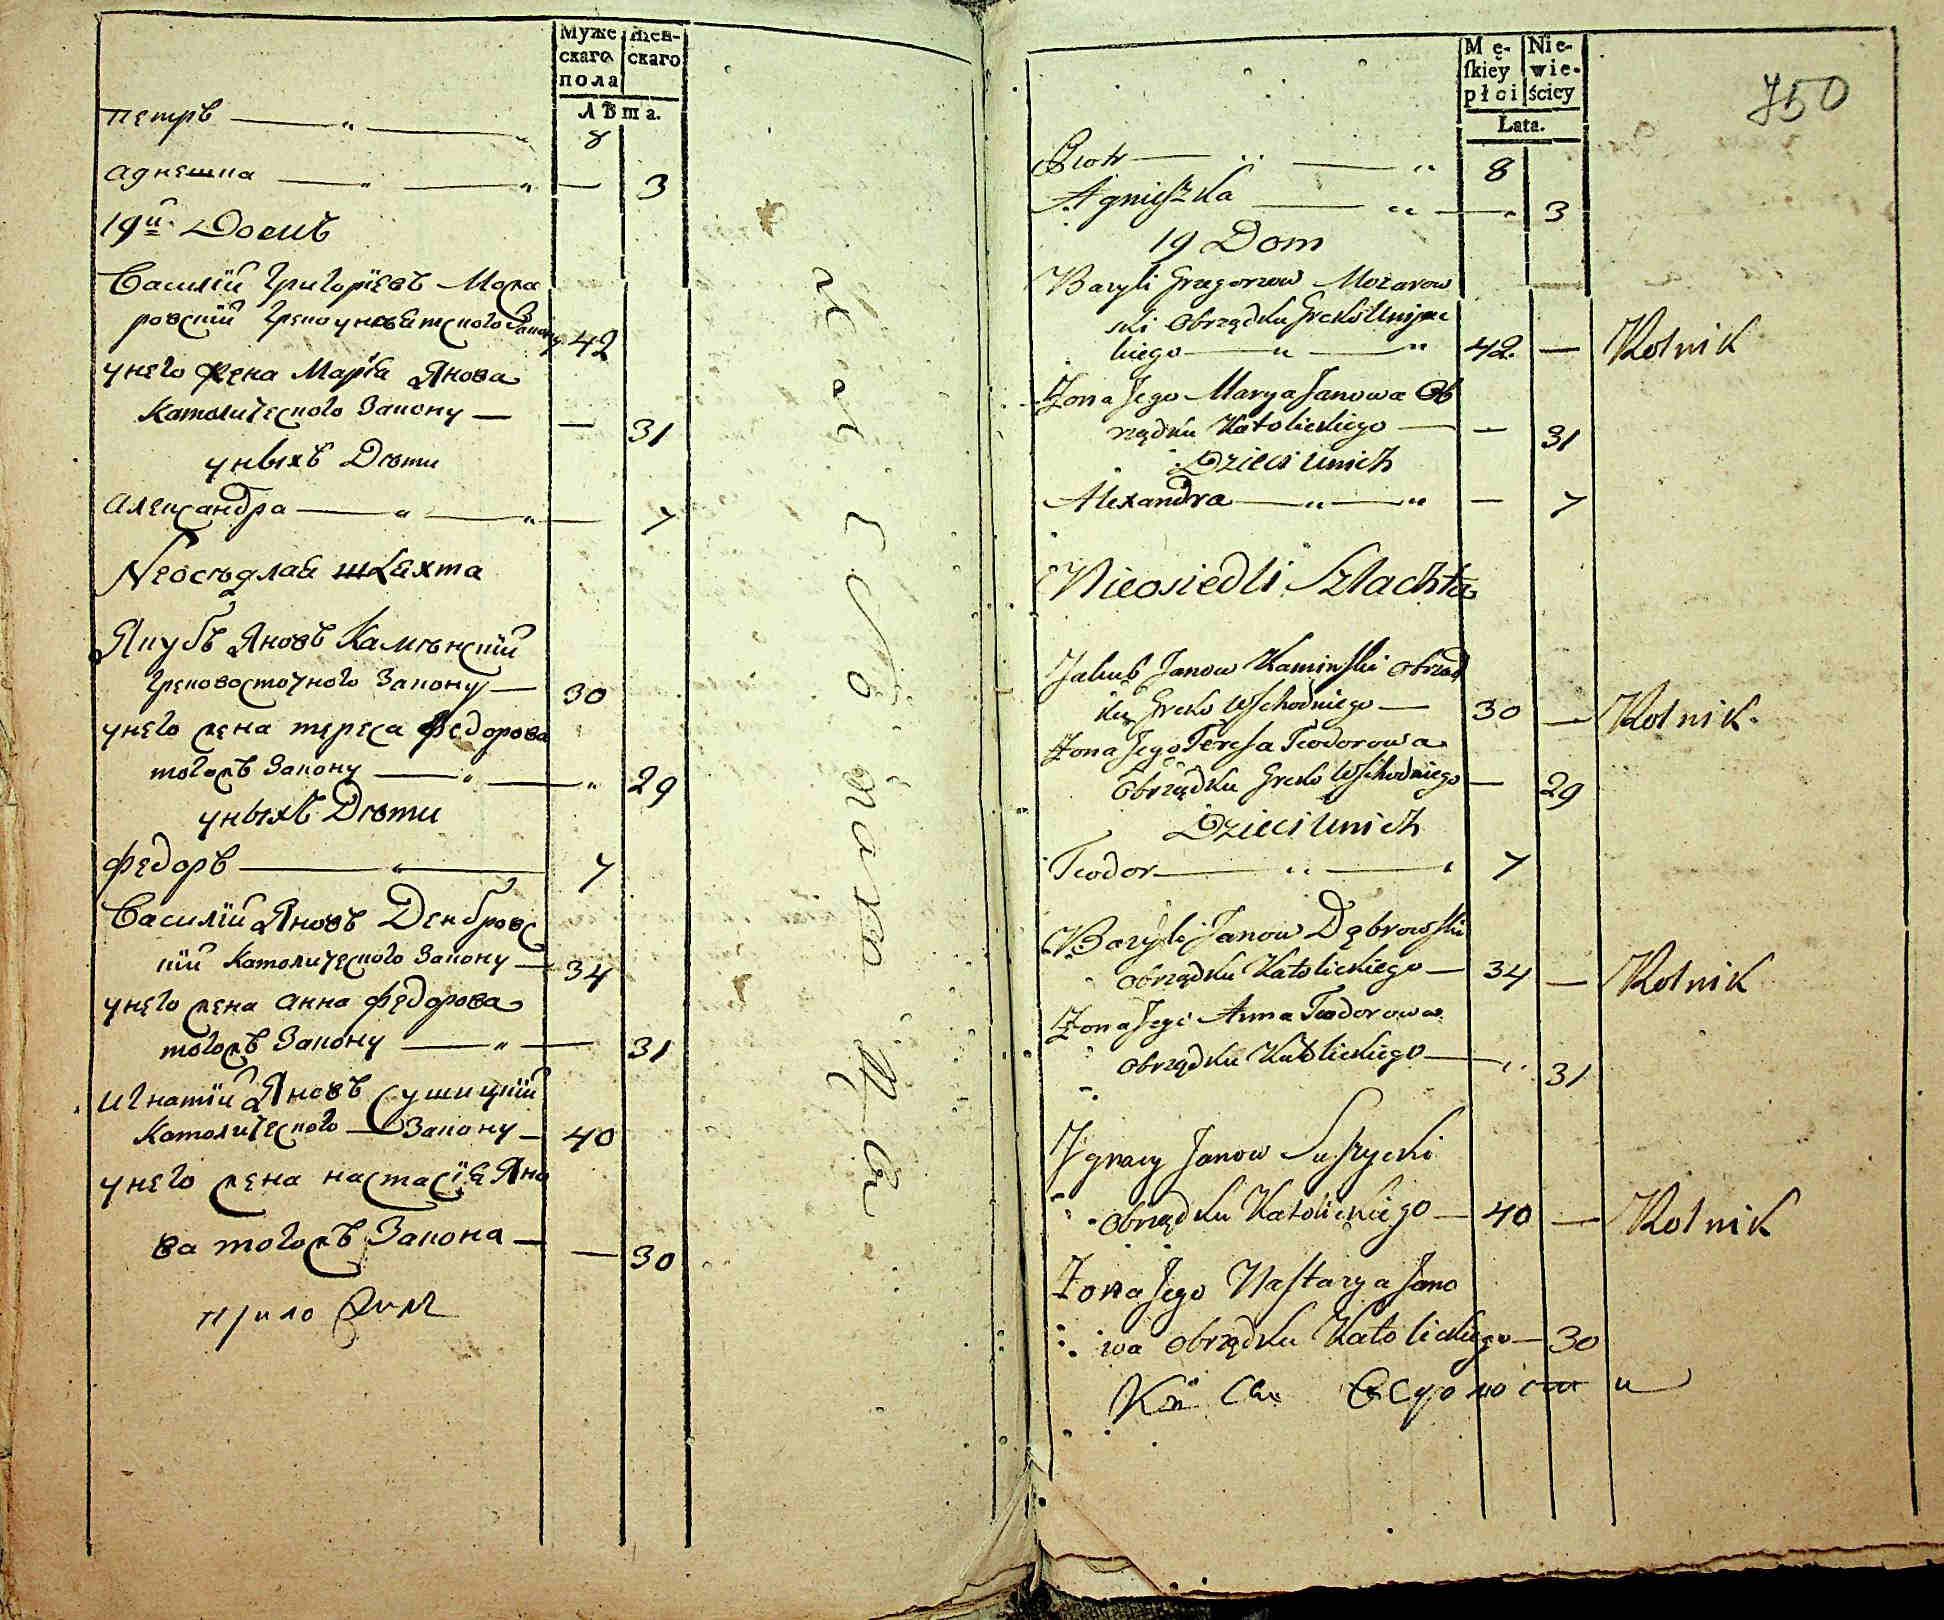 Муже
скаго
пола
Жен-
скаго
Лѣта.
Петръ — " — " 8
Агнешка — " — " — 3
19й. Домъ
Василїй Григорїевъ Моза
ровскїй Грекоунїятского Закону 42
унего жена Марїя Янова
Католического Закону — — 31
уныхъ Дѣти
Александра — " — " — 7
Неосѣдлая шляхта
Якубъ Яновъ Камѣнскїй
Грековосточного Закону — 30
унего жена Тереса Федорова
тогожъ Закону — " — " 29
уныхъ Дѣти
Федоръ — " — 7
Василїй Яновъ Денбровс
кїй Католического Закону — 34
унего жена Анна Федорова
тогожъ Закону — " — 31
Игнатїй Яновъ Сушицкїй
Католического Закону — 40
унего жена Настасїя Яно
ва тогожъ Закона — — 30
Mę-
ſkiey
płci
Nie-
wie-
ściey
Lata.
750
Piotr — " — " 8
Agnieszka — " — " 3
19 Dom
Bazyli Gregorzow Mozarow
ski Obrządku Greko Unijac
kiego — " — " 42. — Rolnik
Żona Jego Marya Janowa Ob
rządku Katolickiego — — 31
Dzieci Unich
Alexandra — " — " — 7
Nieosiedli Szlachta
Jakub Janow Kaminski Obrząd
ku Greko Wschodniego — 30 — Rolnik.
Żona Jego Teresa Teodorowa
Obrządku Greko Wschodniego — 29
Dzieci Unich
Teodor — " — " 7
Bazyli Janow Dąbrowski
Obrządku Katolickiego — 34 — Rolnik
Żona Jego Anna Teodorowa
Obrządku Katolickiego — 31
Ignacy Janow Suszycki
Obrządku Katolickiego — 40 — Rolnik
Żona Jego Nastazya Jano
wa Obrządku Katolickiego — 30